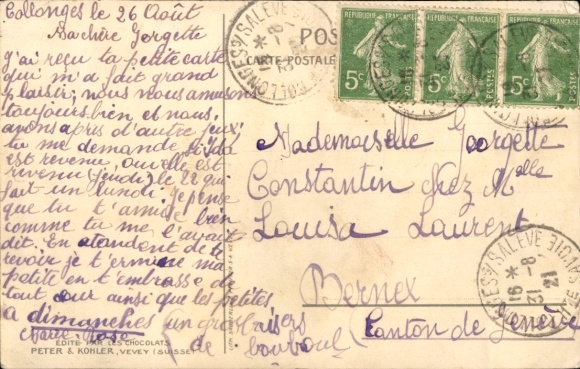 Collonges le 26 Août
Ma chère Georgette
j'ai reçu ta petite carte
qui m'a fait grand
plaisir; nous nous amusons
toujours bien et nous
avons apris d'autre jeux
tu me demande si Ida
est revenu, oui elle est
revenu (jeudi) le 22 qui
fait un lundi. Je pense
que tu t'amuse bien
comme tu me l'avait
dit. En atandent de te
revoir je t'ermine ma
petite en t'embrasse de
tout cœur ainsi que les petites
a dimanches un gros baisers
Marie Rose de
ÉDITÉ PAR LES CHOCOLATS
PETER & KOHLER, VEVEY (SUISSE)
CARTE POSTALE
RÉPUBLIQUE FRANÇAISE
5c
POSTES
RÉPUBLIQUE FRANÇAISE
5c
POSTES
RÉPUBLIQUE FRANÇAISE
5c
POSTES
Mademoiselle Georgette
Constantin chez Melle
Louisa Laurent
Bernex
Canton de Genève
COLLONGES S/ SALÈVE HTE SAVOIE